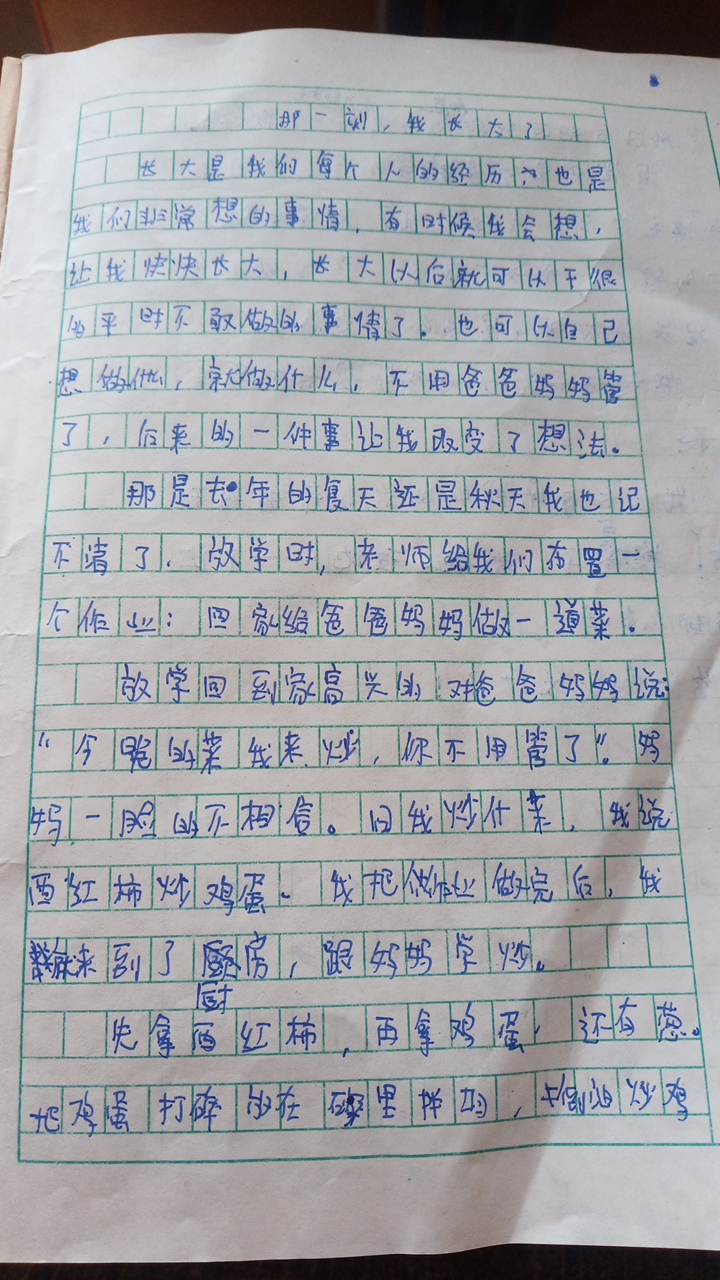 那一刻，我长大了
长大是我们每个人的经历，也是
我们非常想的事情，有时候我会想，
让我快快长大，长大以后就可以干很
多平时不敢做的事情了。也可以自己
想做什么，就做什么，不用爸爸妈妈管
了，后来的一件事让我改变了想法。
那是去年的夏天还是秋天我也记
不清了。放学时，老师给我们布置一
个作业：回家给爸爸妈妈做一道菜。
放学回到家高兴的对爸爸妈妈说：
“今晚的菜我来炒，你不用管了”。妈
妈一脸的不相信。问我炒什菜，我说
西红柿炒鸡蛋。我把作业做完后，我
就来到了厨房，跟妈妈学炒。
厨
先拿西红柿，再拿鸡蛋，还有葱。
把鸡蛋打碎放在碗里拌均，倒油炒鸡